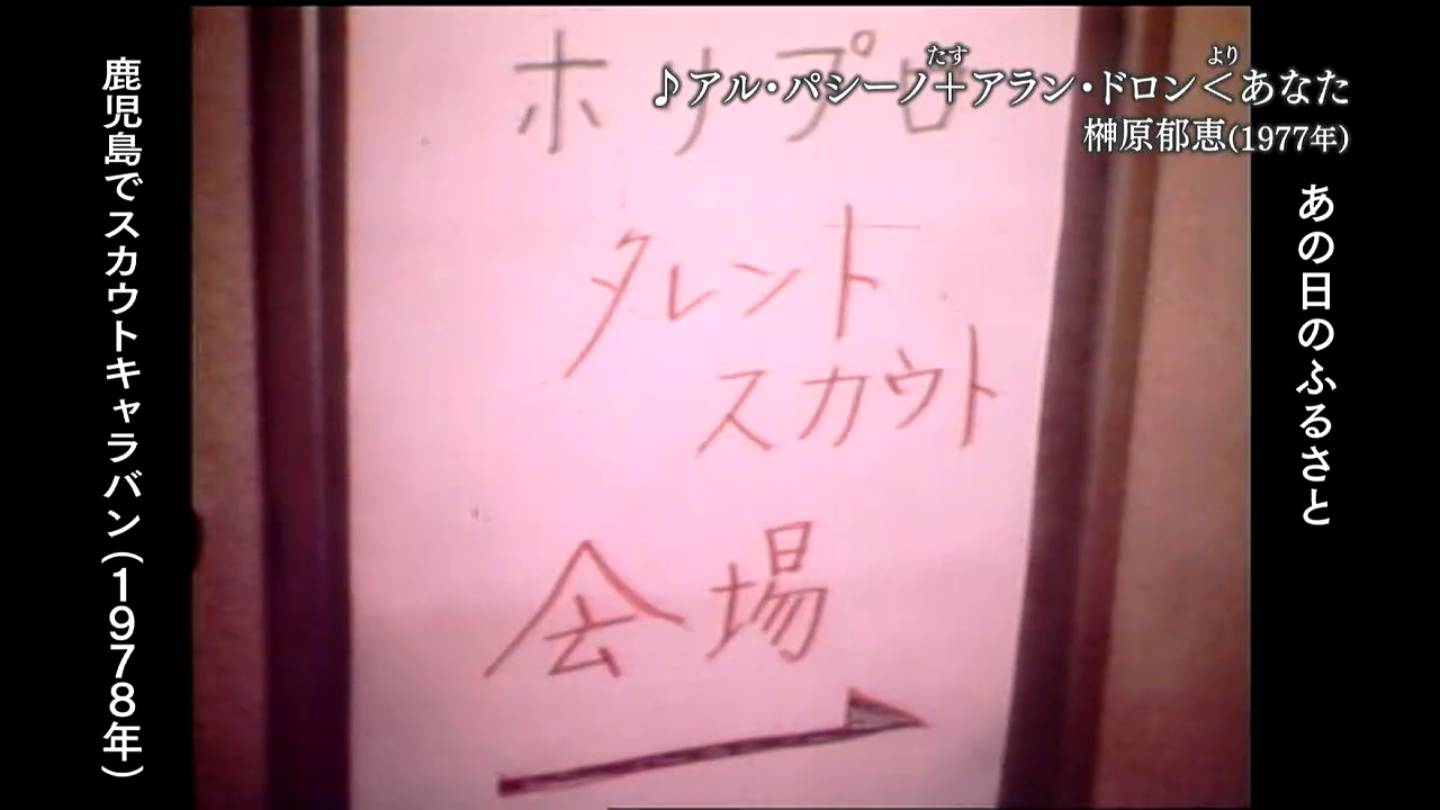 ♪アル・パシーノ＋アラン・ドロン＜あなた
たす
より
榊原郁恵(1977年)
あの日のふるさと
鹿児島でスカウトキャラバン(1978年)
ホリプロ
タレント
スカウト
会場